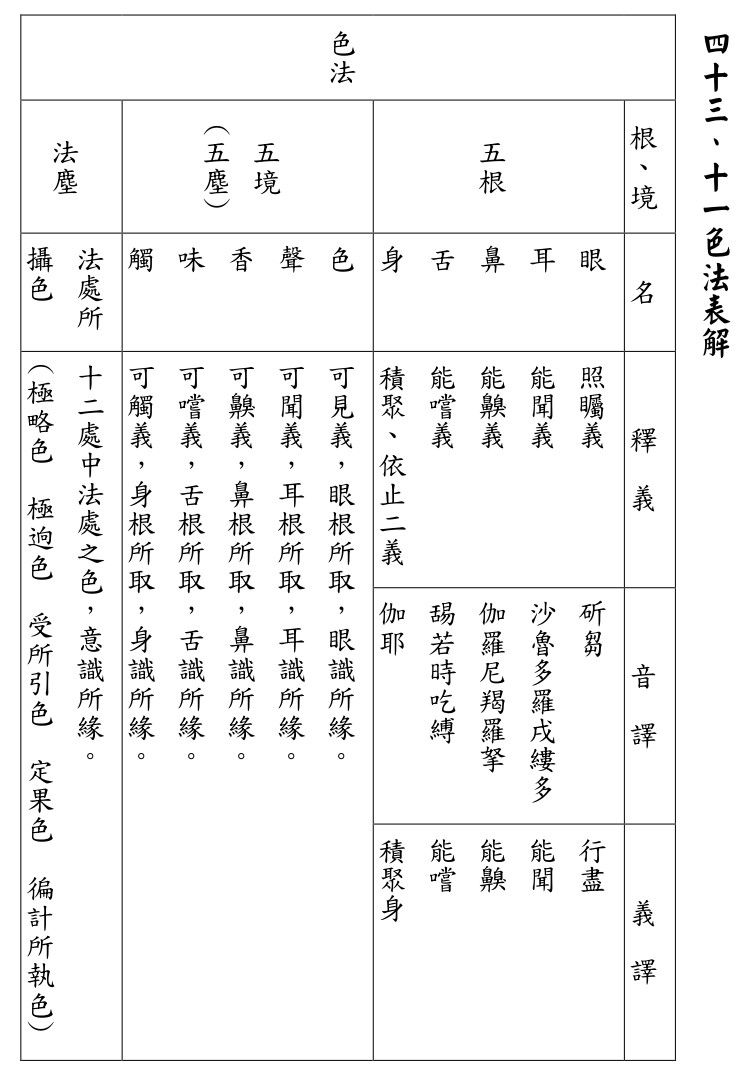 四十三、十一色法表解
色法
根、境
名
釋義
音譯
義譯
五根
眼
照矚義
斫芻
行盡
耳
能聞義
沙魯多羅戍縷多
能聞
鼻
能齅義
伽羅尼羯羅拏
能齅
舌
能嚐義
舓若時吃縛
能嚐
身
積聚、依止二義
伽耶
積聚身
五境
（五塵）
色
可見義，眼根所取，眼識所緣。
聲
可聞義，耳根所取，耳識所緣。
香
可齅義，鼻根所取，鼻識所緣。
味
可嚐義，舌根所取，舌識所緣。
觸
可觸義，身根所取，身識所緣。
法塵
法處所
攝色
十二處中法處之色，意識所緣。
（極略色　極逈色　受所引色　定果色　徧計所執色）